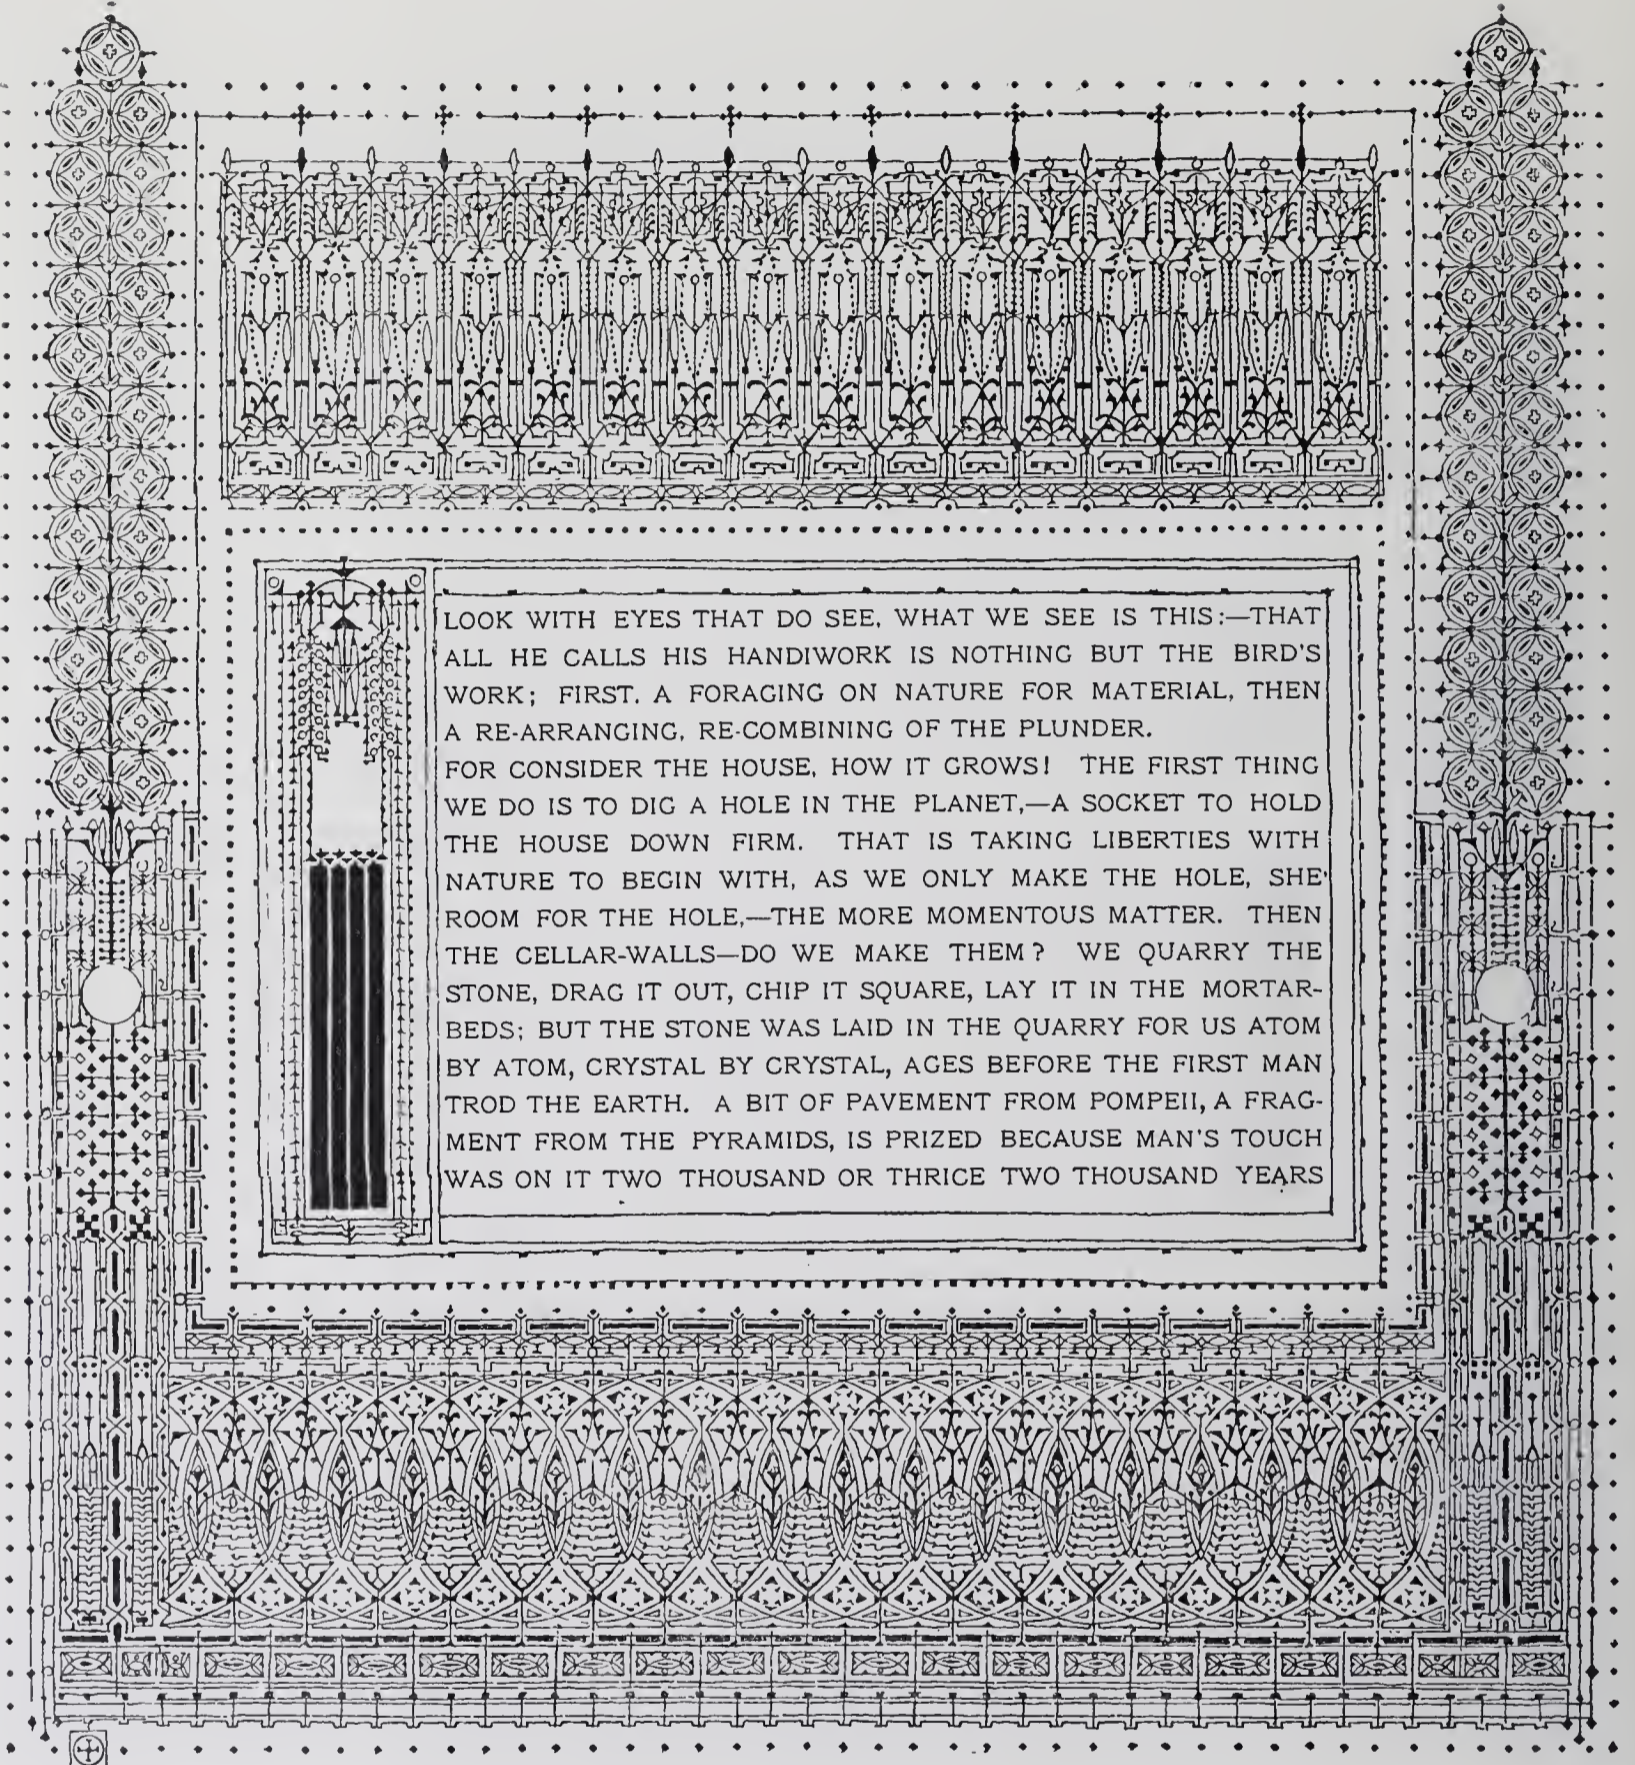 LOOK WITH EYES THAT DO SEE, WHAT WE SEE IS THIS:—THAT
ALL HE CALLS HIS HANDIWORK IS NOTHING BUT THE BIRD'S
WORK; FIRST. A FORAGING ON NATURE FOR MATERIAL, THEN
A RE-ARRANGING, RE-COMBINING OF THE PLUNDER.
FOR CONSIDER THE HOUSE, HOW IT GROWS! THE FIRST THING
WE DO IS TO DIG A HOLE IN THE PLANET,—A SOCKET TO HOLD
THE HOUSE DOWN FIRM. THAT IS TAKING LIBERTIES WITH
NATURE TO BEGIN WITH, AS WE ONLY MAKE THE HOLE, SHE
ROOM FOR THE HOLE,—THE MORE MOMENTOUS MATTER. THEN
THE CELLAR-WALLS—DO WE MAKE THEM? WE QUARRY THE
STONE, DRAG IT OUT, CHIP IT SQUARE, LAY IT IN THE MORTAR-
BEDS; BUT THE STONE WAS LAID IN THE QUARRY FOR US ATOM
BY ATOM, CRYSTAL BY CRYSTAL, AGES BEFORE THE FIRST MAN
TROD THE EARTH. A BIT OF PAVEMENT FROM POMPEII, A FRAG-
MENT FROM THE PYRAMIDS, IS PRIZED BECAUSE MAN'S TOUCH
WAS ON IT TWO THOUSAND OR THRICE TWO THOUSAND YEARS